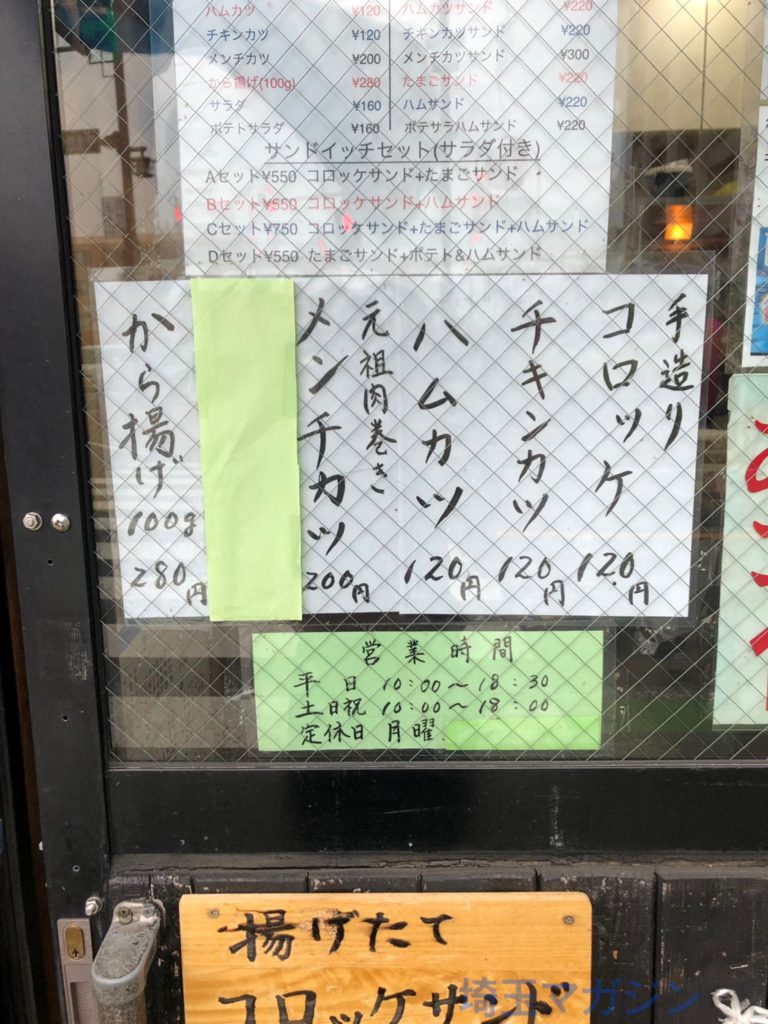 ハムカツ ¥120 ハムカツサンド ¥220
チキンカツ ¥120 チキンカツサンド ¥220
メンチカツ ¥200 メンチカツサンド ¥300
から揚げ(100g) ¥280 たまごサンド ¥220
サラダ ¥160 ハムサンド ¥220
ポテトサラダ ¥160 ポテサラハムサンド ¥220
サンドイッチセット(サラダ付き)
Aセット¥550 コロッケサンド+たまごサンド
Bセット¥550 コロッケサンド+ハムサンド
Cセット¥750 コロッケサンド+たまごサンド+ハムサンド
Dセット¥550 たまごサンド+ポテト&ハムサンド
手造り
コロッケ 120円
チキンカツ 120円
ハムカツ 120円
元祖肉巻き
メンチカツ 200円
から揚げ 100g 280円
営業時間
平日 10:00~18:30
土日祝 10:00~18:00
定休日 月曜
揚げたて
コロッケサンド
埼玉マガジン